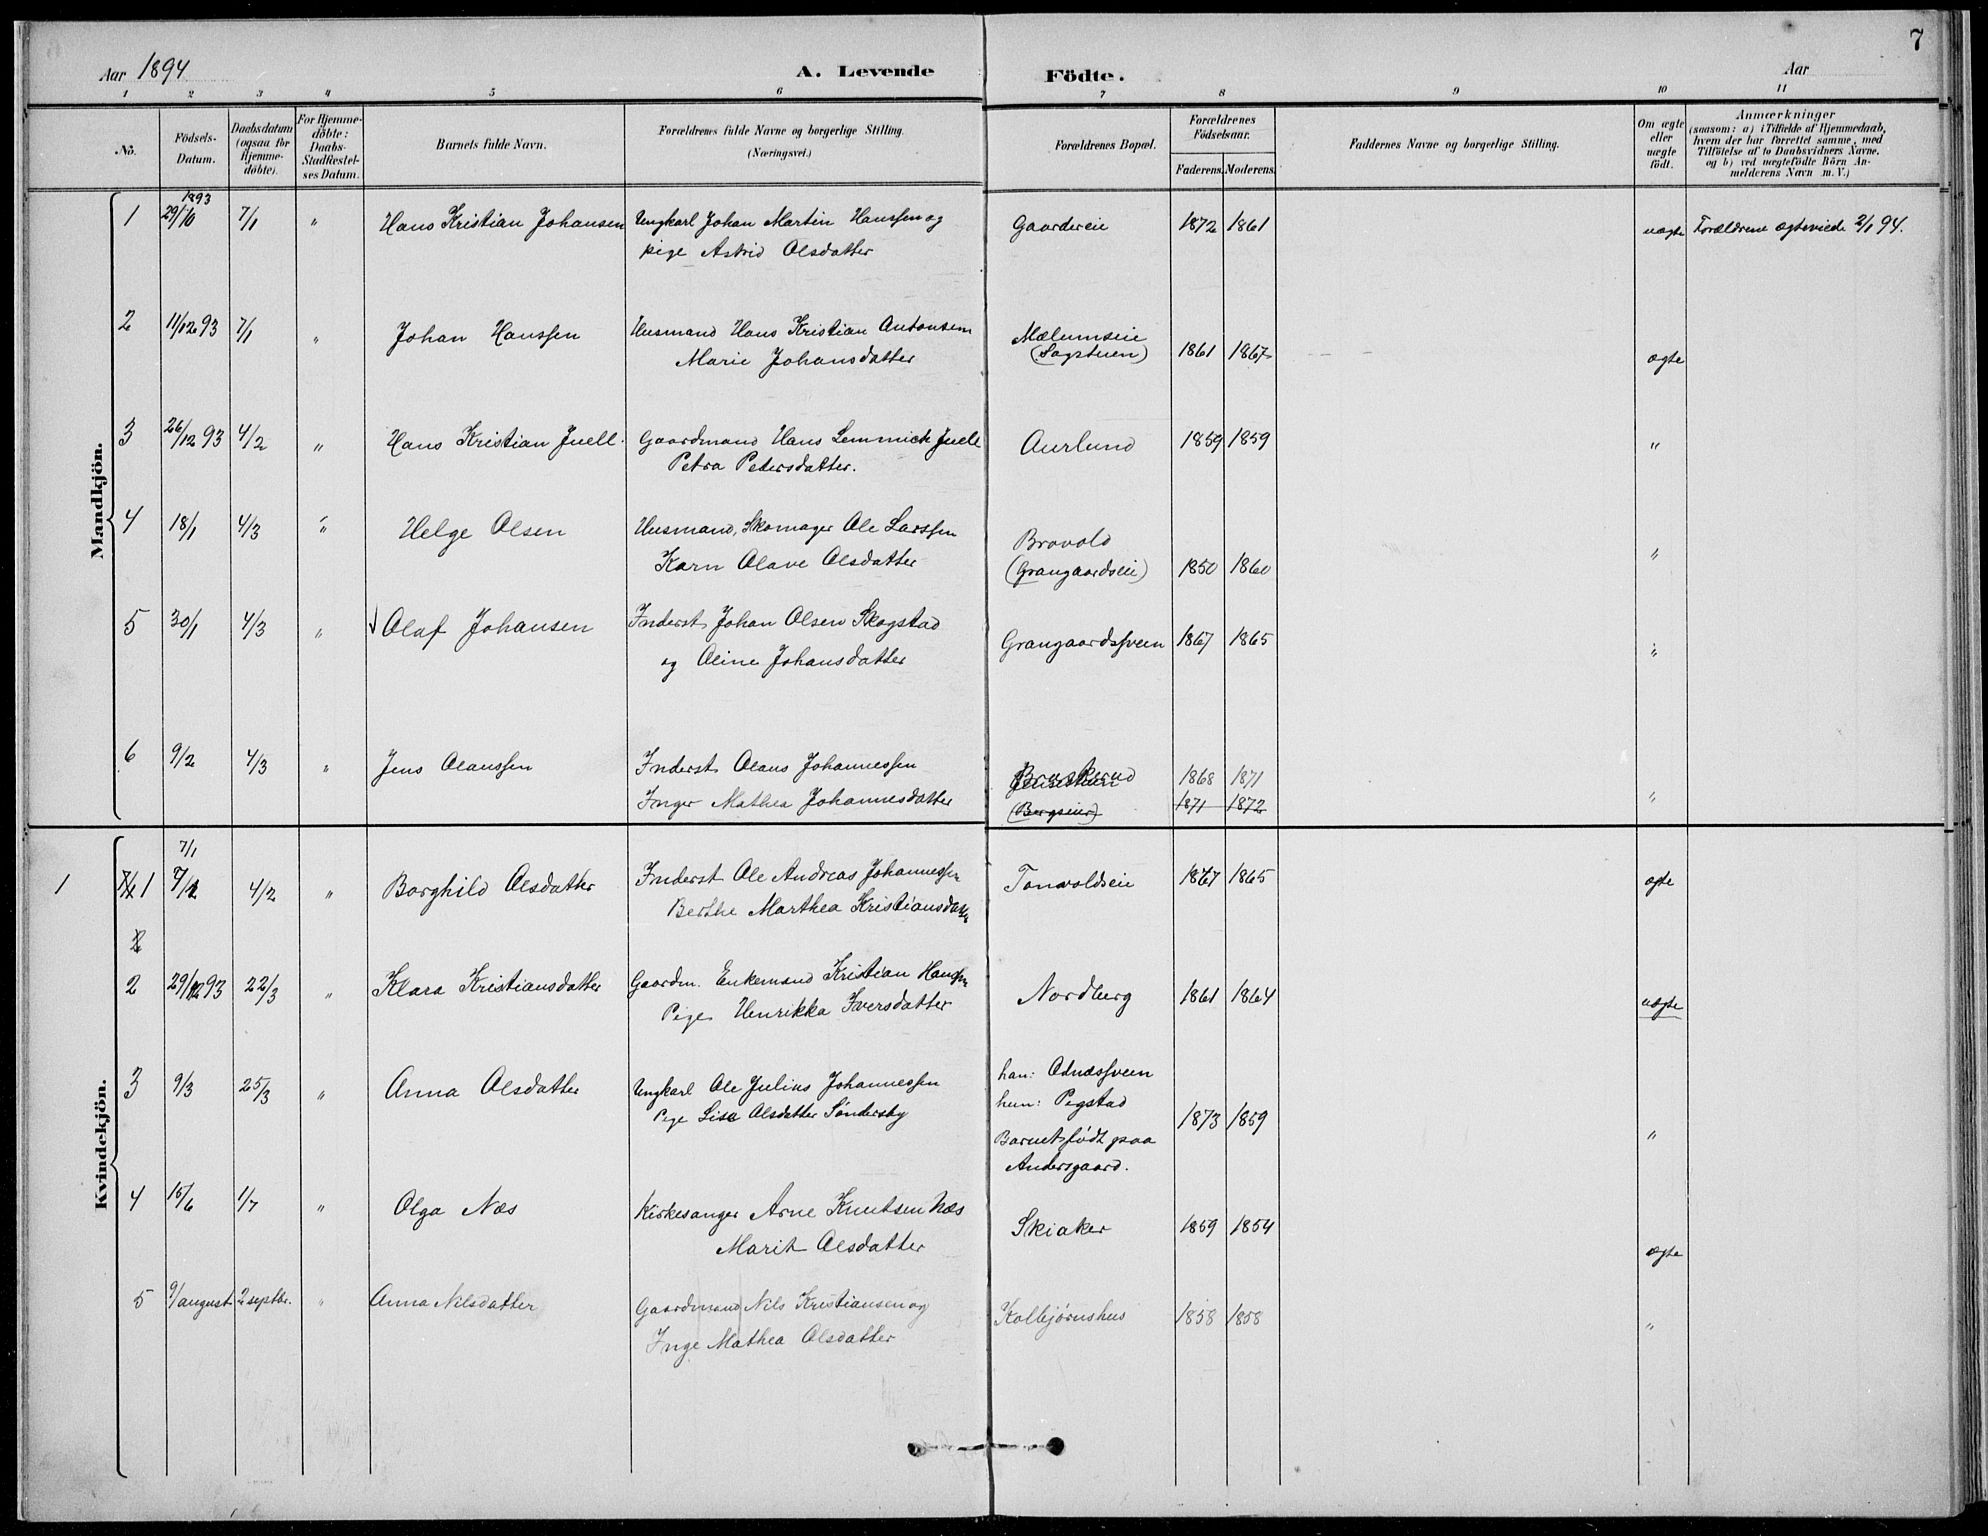 7
Aar 1894 A. Levende Födte. Aar
1 2 3 4 5 6 7 8 9 10 11
No. Födsels-Datum. Daabsdatum (ogsaa for Hjemmedöbte). For Hjemmedöbte: Daabs-Stadfæstelses Datum. Barnets fulde Navn. Forældrenes fulde Navne og borgerlige Stilling. (Næringsvei.) Forældrenes Bopæl. Forældrenes Födselsaar. Faderens. Moderens. Faddernes Navne og borgerlige Stilling. Om ægte eller uægte födt. Anmærkninger (saasom: a) i Tilfælde af Hjemmedaab, hvem der har forrettet samme, med Tilföielse af to Daabsvidners Navne, og b) ved uægtefödte Börn Anmelderens Navn m. V.)
Mandkjön.
1893
1 29/10 7/1 " Hans Kristian Johansen Ungkarl Johan Martin Hanssen og Gaardereie 1872 1861 uægte Forældrene ægteviede 2/1 94.
pige Astrid Olsdatter
2 11/12 93 7/1 " Johan Hanssen Husmand Hans Kristian Antonsen Mælumseie
Marie Johansdatter (Sagstuen) 1861 1867 ægte
3 26/12 93 4/2 " Hans Kristian Juell. Gaardmand Hans Lemmich Juell Aurlund 1859 1859 "
Petra Petersdatter.
4 18/1 4/3 " Helge Olsen Husmand, Skomager Ole Larssen Brovold
Karn Olave Olsdatter (Grangaardseie) 1850 1860 "
5 30/1 4/3 " Olaf Johansen Inderst Johan Olsen Skogstad Grangaardssveen 1867 1865 "
og Oline Johansdatter
6 9/2 4/3 " Jens Olaussen Inderst Olaus Johannessen 1868 1871
Inger Mathea Johannesdatter (Bergseie) 1871 1872 "
Kvindekjön.
7/1
1 1 4/2 " Borghild Olsdatter Inderst Ole Andreas Johannessen Tonvoldseie 1867 1865 ægte
Berthe Marthea Kristiansdatter
2
2 29/12 93 22/3 " Klara Kristiansdatter Gaardm. Enkemand Kristian Hansen Nordberg 1861 1864 uægte
Pige Henrikka Iversdatter
3 9/3 25/3 " Anna Olsdatter Ungkarl Ole Julius Johannessen han: Odnæssveen
Pige Lise Olsdatter Söndersby hun: Pegstad 1873 1859
Barnet født paa "
Andersgaard.
4 15/6 1/7 " Olga Næs Kirkesanger Arne Knutsen Næs Skiaker 1859 1854
Marit Olsdatter ægte
5 9/august 2 septbr. " Anna Nilsdatter Gaardmand Nils Kristiansen og Kolbjørnshus 1858 1858 "
Inge Mathea Olsdatter